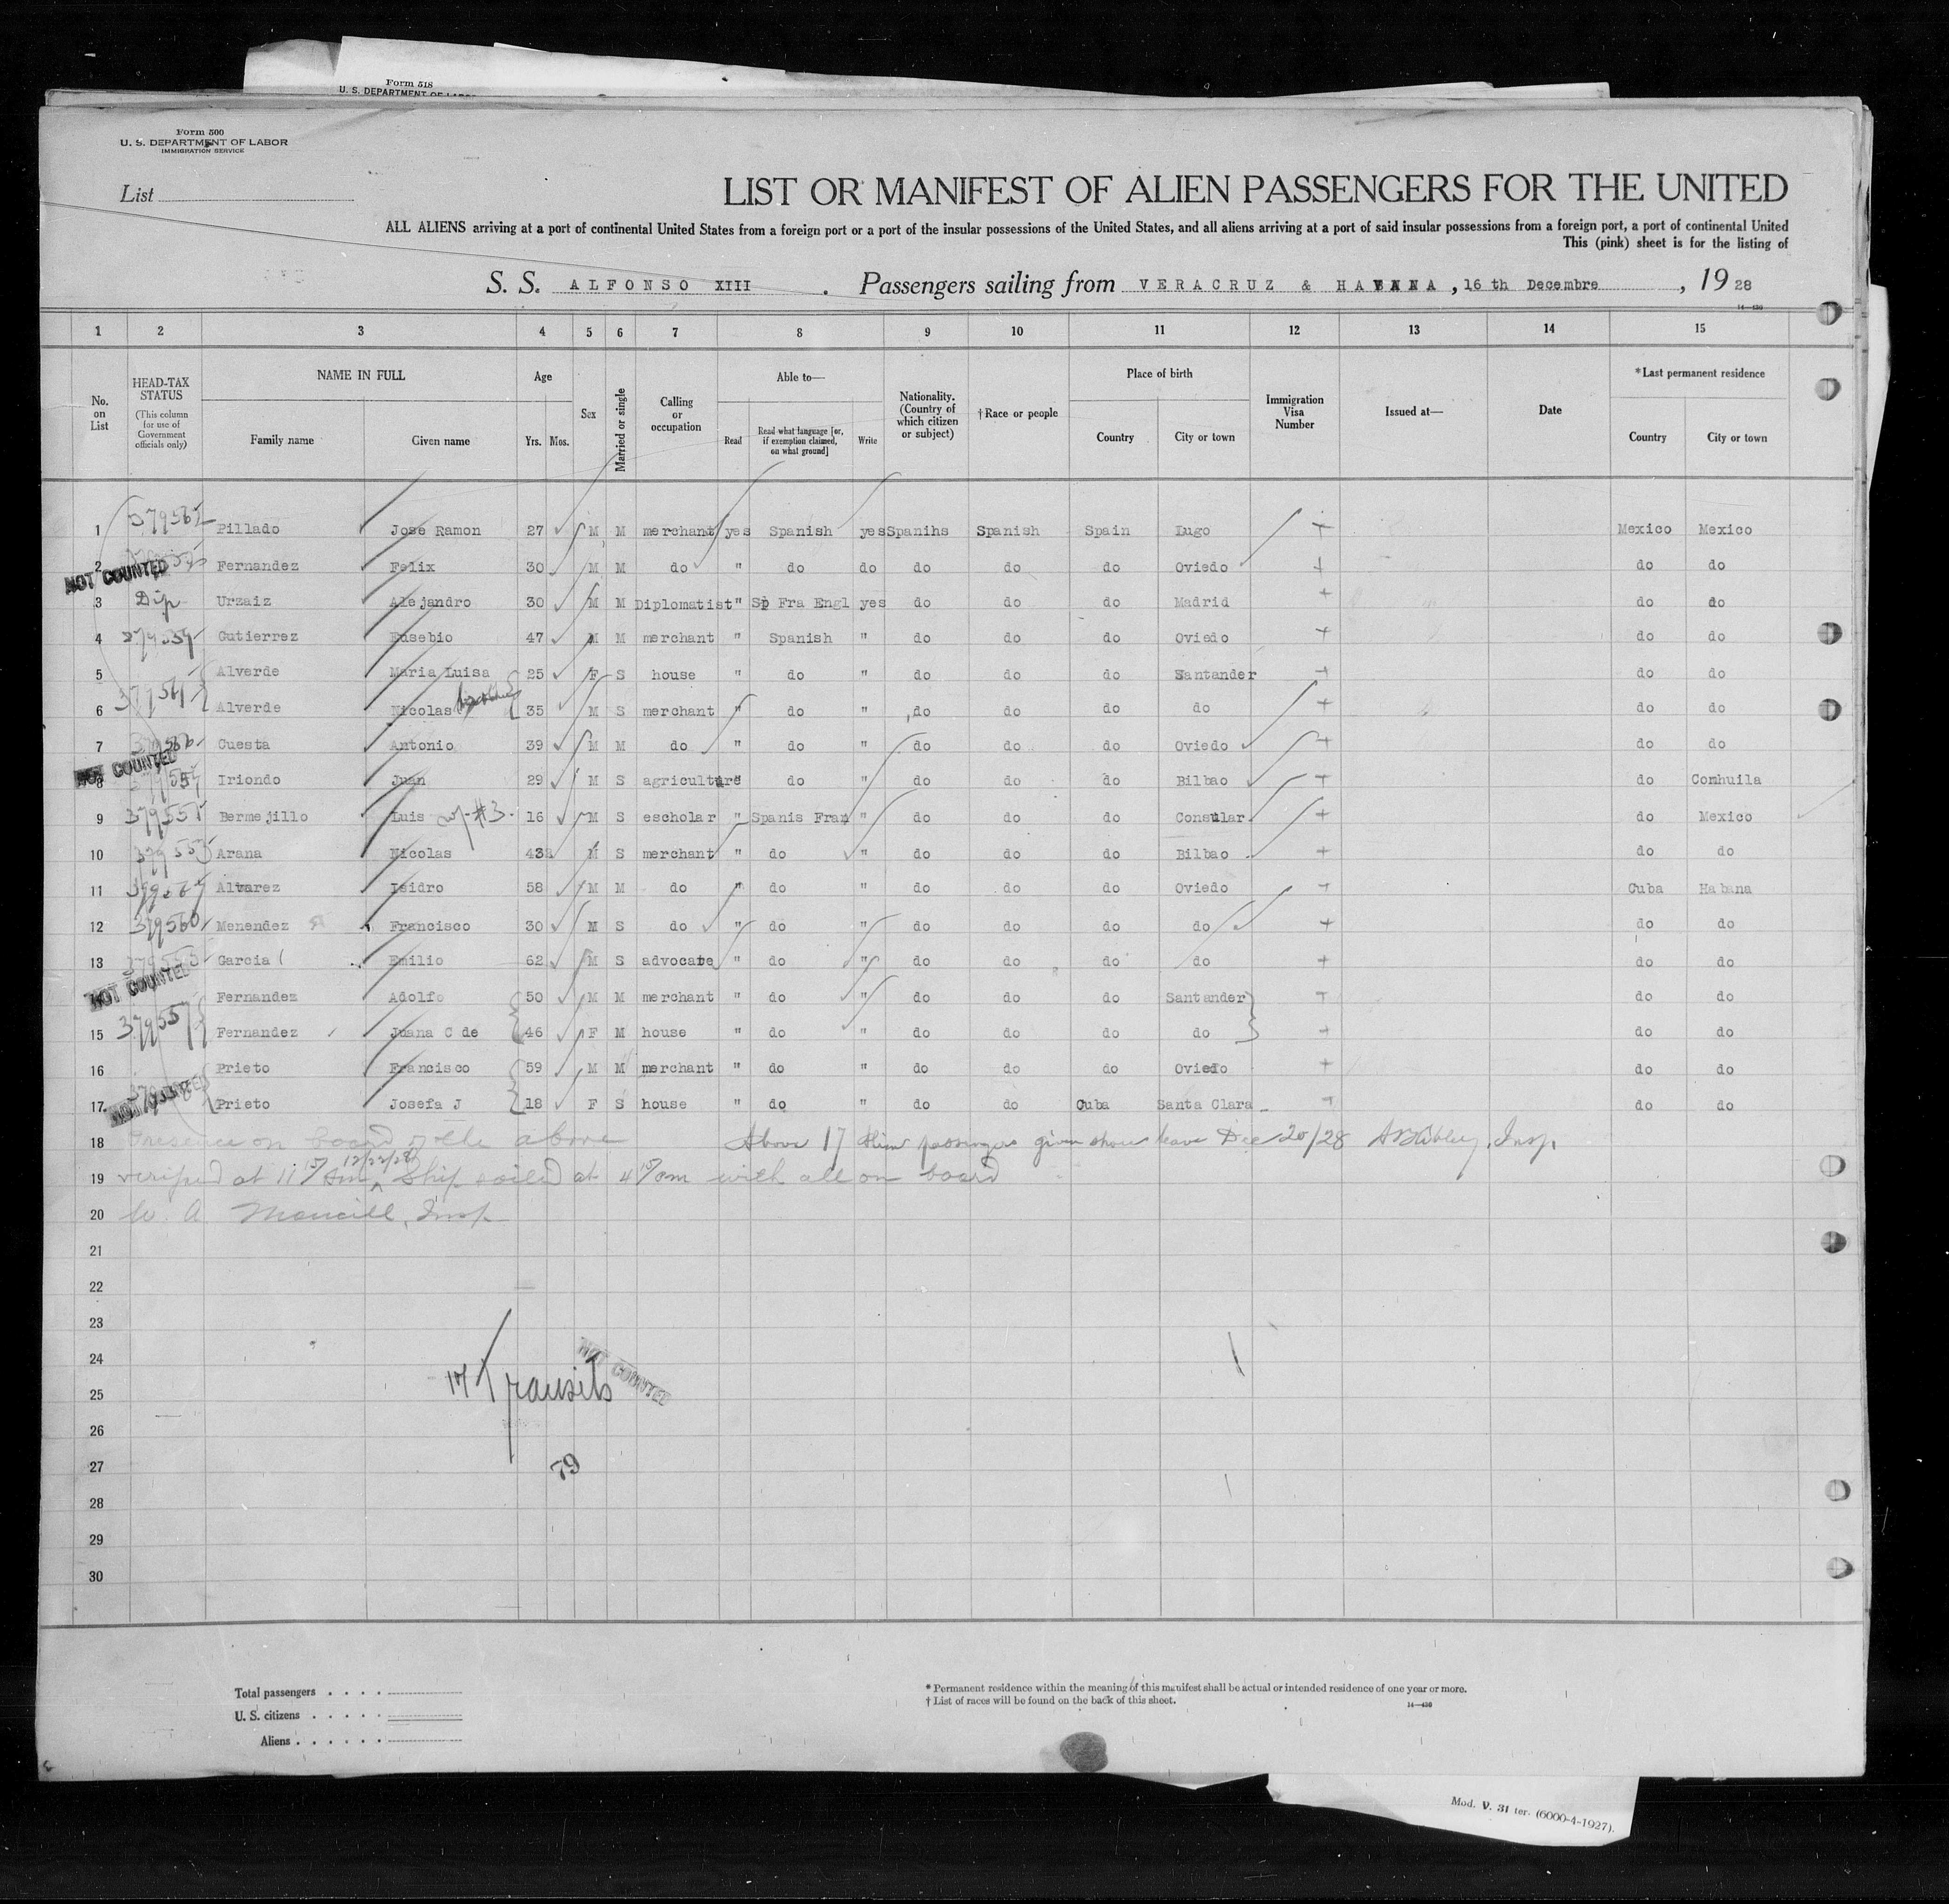 Form 518
U. S. DEPARTMENT OF LABOR
Form 500
U. S. DEPARTMENT OF LABOR
IMMIGRATION SERVICE
List
LIST OR MANIFEST OF ALIEN PASSENGERS FOR THE UNITED
ALL ALIENS arriving at a port of continental United States from a foreign port or a port of the insular possessions of the United States, and all aliens arriving at a port of said insular possessions from a foreign port, a port of continental United
This (pink) sheet is for the listing of
S. S. ALFONSO XIII . Passengers sailing from VERACRUZ & HAVANA , 16 th Decembre , 19 28
14—430
1 2 3 4 5 6 7 8 9 10 11 12 13 14 15
No. on List HEAD-TAX STATUS (This column for use of Government officials only) NAME IN FULL Family name Given name Age Yrs. Mos. Sex Married or single Calling or occupation Able to— Read Read what language [or, if exemption claimed, on what ground] Write Nationality. (Country of which citizen or subject) †Race or people Place of birth Country City or town Immigration Visa Number Issued at— Date *Last permanent residence Country City or town
1 Pillado Jose Ramon 27 M M merchant yes Spanish yes Spanihs Spanish Spain Lugo Mexico Mexico
2 NOT COUNTED Fernandez Felix 30 M M do " do do do do do Oviedo do do
3 Dip Urzaiz Alejandro 30 M M Diplomatist " Sp Fra Engl yes do do do Madrid do do
4 Gutierrez Eusebio 47 M M merchant " Spanish " do do do Oviedo do do
5 Alverde Maria Luisa 25 F S house " do " do do do Santander do do
6 Alverde Nicolas 35 M S merchant " do " do do do do do do
7 Cuesta Antonio 39 M M do " do " do do do Oviedo do do
NOT COUNTED
8 Iriondo Juan 29 M S agriculture " do " do do do Bilbao do Comhuila
9 379551 Bermejillo Luis w/-#3- 16 M S escholar " Spanis Fran " do do do Consular do Mexico
10 Arana Nicolas 43 M S merchant " do " do do do Bilbao do do
11 Alvarez Isidro 58 M M do " do " do do do Oviedo Cuba Habana
12 379560 Menendez Francisco 30 M S do " do " do do do do do do
13 Garcia ( Emilio 62 M S advocate " do " do do do do do do
NOT COUNTED Fernandez Adolfo 50 M M merchant " do " do do do Santander do do
15 379557 Fernandez Juana C de 46 F M house " do " do do do do do do
16 Prieto Francisco 59 M M merchant " do " do do do Oviedo do do
17 NOT COUNTED Prieto Josefa J 18 F S house " do " do do Cuba Santa Clara do do
18 Presence on board of the above Above 17 alien passengers given shore leave Dec 20/28 Insp.
19 verified at 11 15/ am 12/22/28 Ship sailed at 4 15/ pm with all on board
20 W. A. Insp
21
22
23
24
25
26
27
28
29
30
17 Transits NOT COUNTED
79
Total passengers . . . .
U. S. citizens . . . . .
Aliens . . . . . .
* Permanent residence within the meaning of this manifest shall be actual or intended residence of one year or more.
† List of races will be found on the back of this sheet.
14—430
Mod. V. 31 ter. (6000-4-1927).